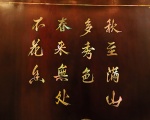 秋至满山
多秀色
春来无处
不花香